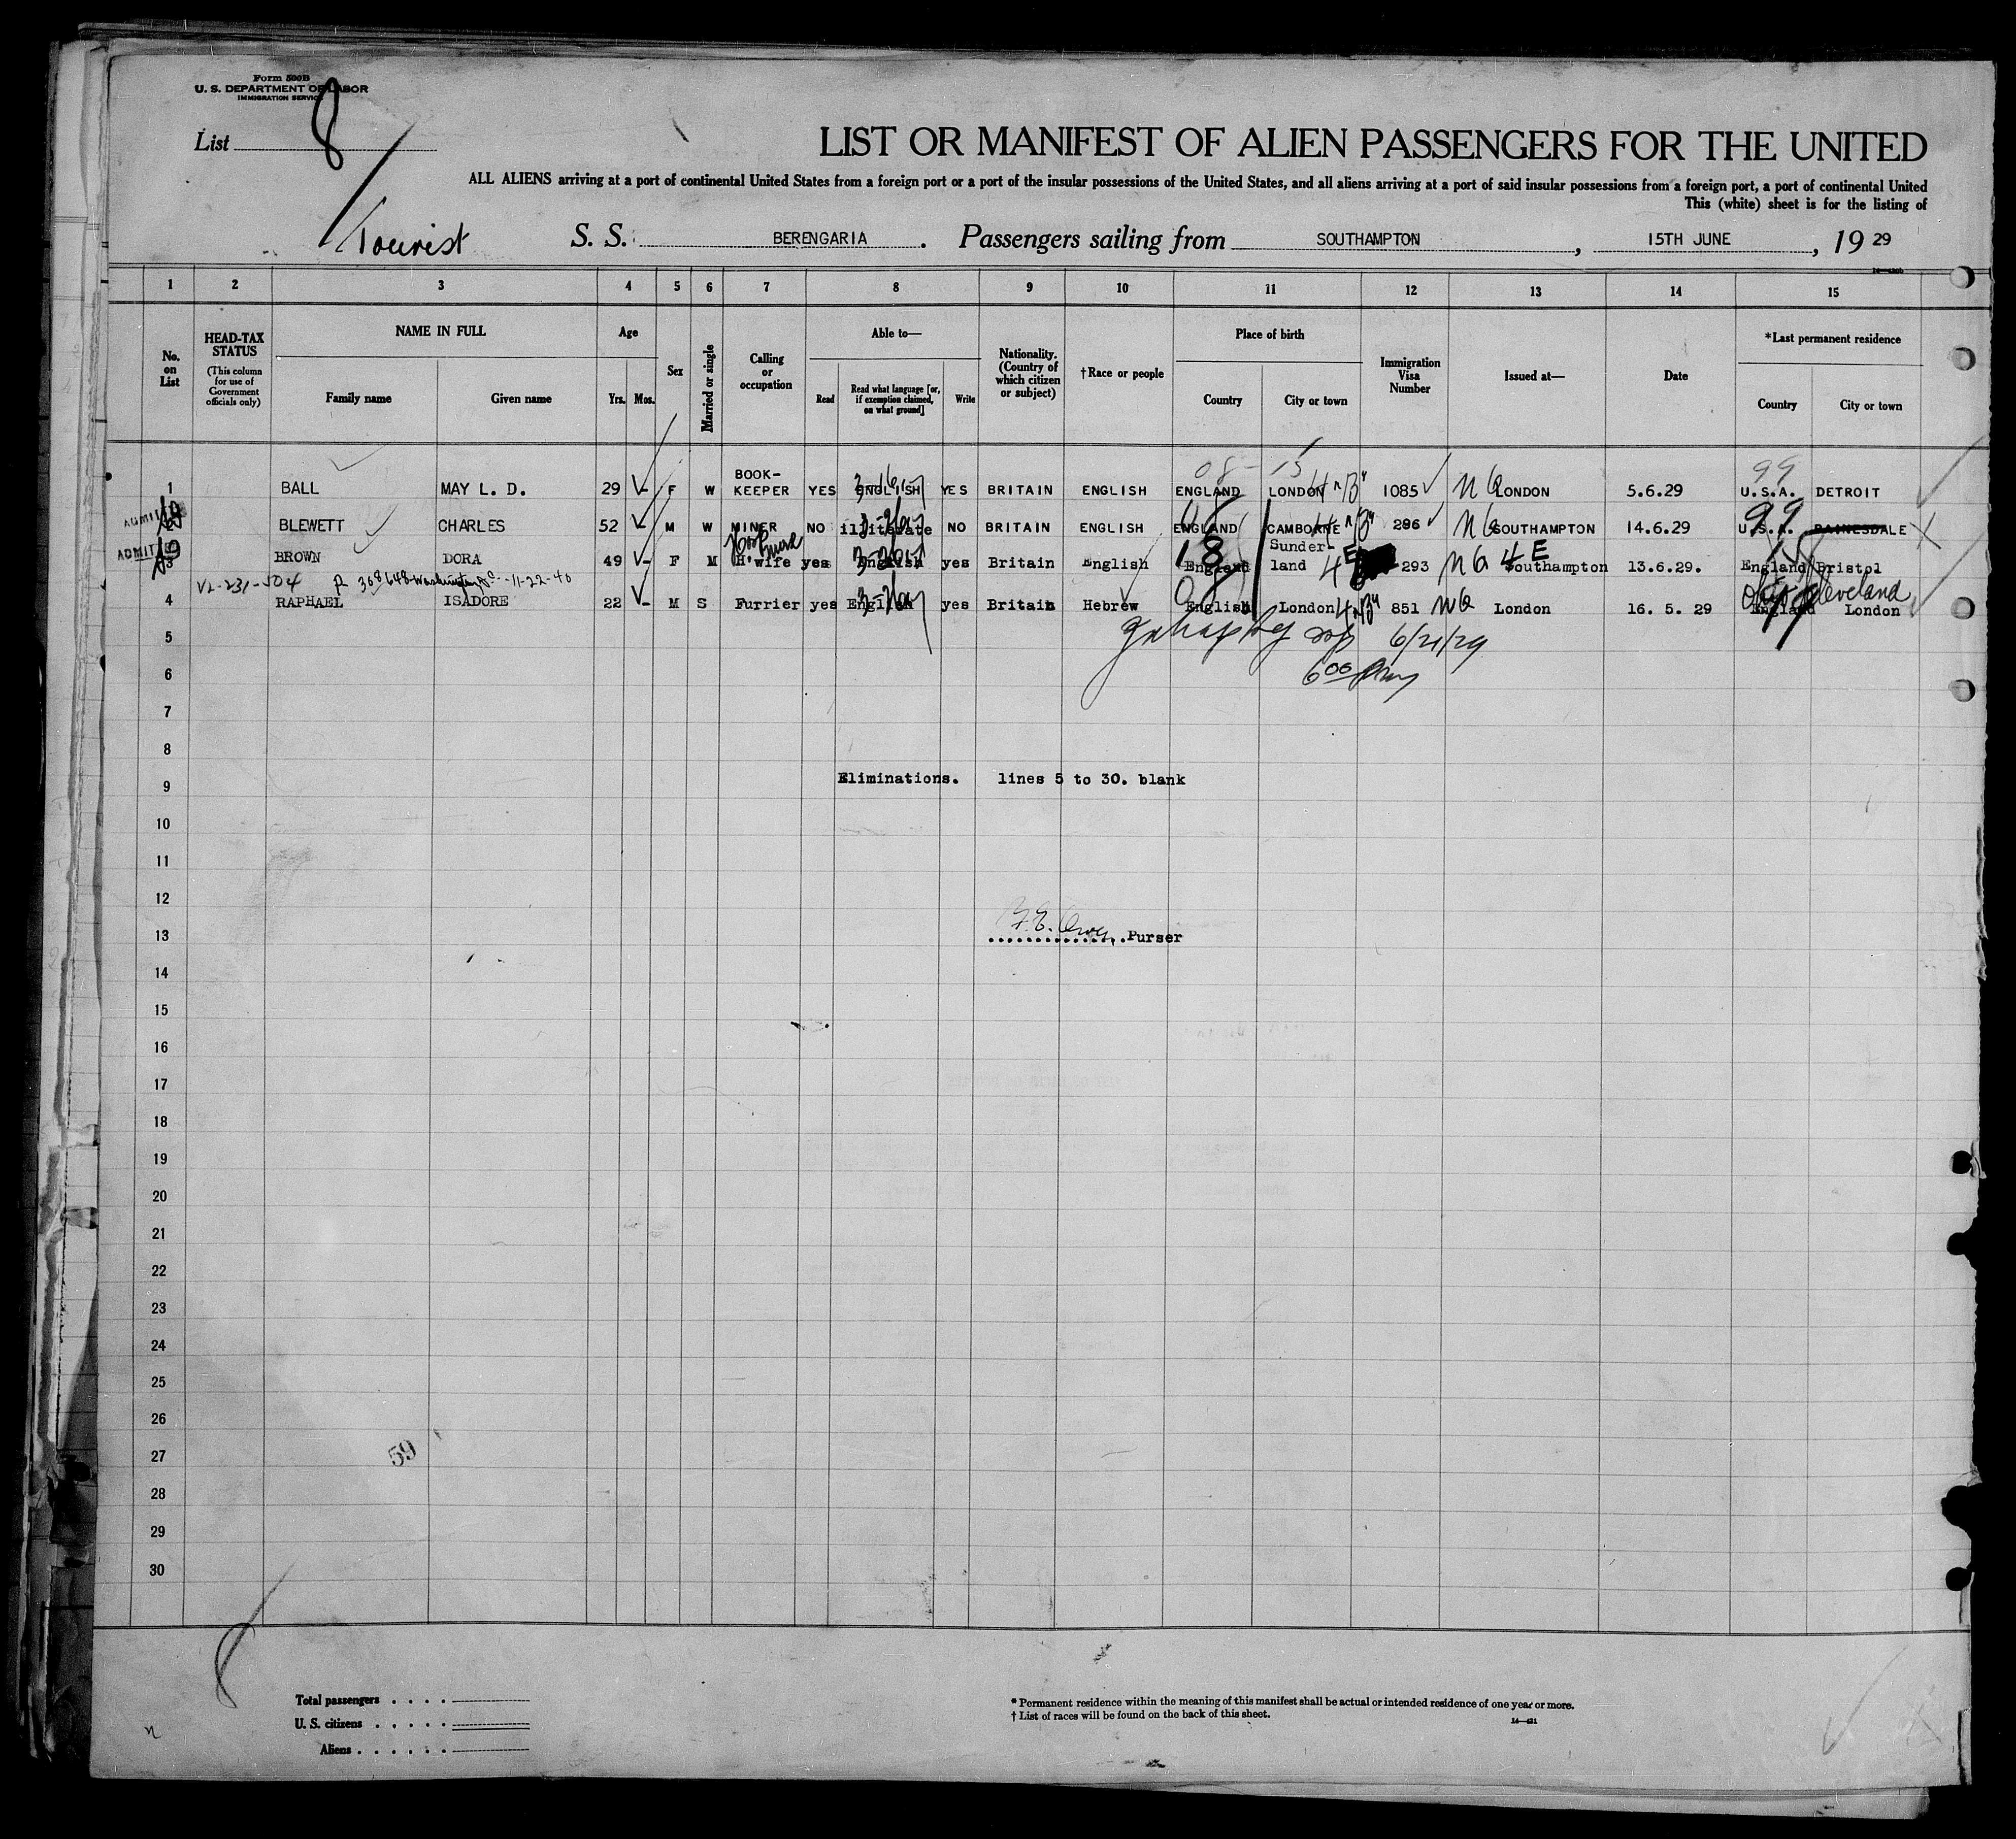 Form 500B
U. S. DEPARTMENT OF LABOR
IMMIGRATION SERVICE
List 8
LIST OR MANIFEST OF ALIEN PASSENGERS FOR THE UNITED
ALL ALIENS arriving at a port of continental United States from a foreign port or a port of the insular possessions of the United States, and all aliens arriving at a port of said insular possessions from a foreign port, a port of continental United
This (white) sheet is for the listing of
Tourist S. S. BERENGARIA. Passengers sailing from SOUTHAMPTON, 15TH JUNE, 19 29
1 2 3 4 5 6 7 8 9 10 11 12 13 14 15
No. on List
HEAD-TAX STATUS (This column for use of Government officials only)
NAME IN FULL Family name Given name
Age Yrs. Mos.
Sex
Married or single
Calling or occupation
Able to— Read Read what language [or, if exemption claimed, on what ground] Write
Nationality. (Country of which citizen or subject)
†Race or people
Place of birth Country City or town
Immigration Visa Number
Issued at—
Date
*Last permanent residence Country City or town
08 15 99
1 BALL MAY L. D. 29 F W BOOK-KEEPER YES ENGLISH YES BRITAIN ENGLISH ENGLAND LONDON 1085 LONDON 5.6.29 U.S.A. DETROIT
ADMITTED BLEWETT CHARLES 52 M W MINER NO illiterate NO BRITAIN ENGLISH ENGLAND CAMBORNE 296 SOUTHAMPTON 14.6.29 U.S.A. PAINESDALE
ADMITTED 3 BROWN DORA 49 F M H'wife yes English yes Britain English England Sunderland 293 Southampton 13.6.29. England Bristol
V2-231-504 R 368648-Washington DC-11-22-40
4 RAPHAEL ISADORE 22 M S Furrier yes English yes Britain Hebrew English London 851 London 16. 5. 29 England London
Cleveland
5
6/21/29
6
600
7
8
Eliminations. lines 5 to 30. blank
9
10
11
12
13
...............Purser
14
15
16
17
18
19
20
21
22
23
24
25
26
27
59
28
29
30
8
Total passengers . . . .
U. S. citizens . . . . .
Aliens . . . . . .
* Permanent residence within the meaning of this manifest shall be actual or intended residence of one year or more.
† List of races will be found on the back of this sheet.
14—421